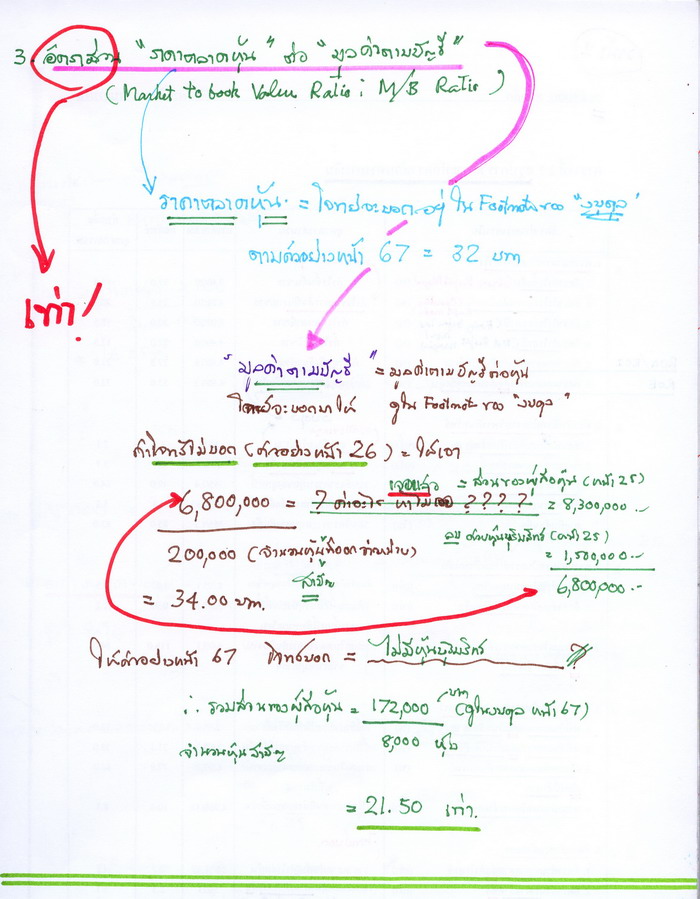 3. อัตราส่วน "ราคาตลาดหุ้น" ต่อ "มูลค่าตามบัญชี"
(Market to book Value Ratio : M/B Ratio)
ราคาตลาดหุ้น = โจทย์จะบอก อยู่ใน Footnote ของ "งบดุล"
ตามตัวอย่างหน้า 67 = 32 บาท
เท่า!
"มูลค่าตามบัญชี" = มูลค่าตามบัญชีต่อหุ้น
โจทย์จะบอกมาให้ ดูใน Footnote ของ "งบดุล"
ถ้าโจทย์ไม่บอก (ตัวอย่างหน้า 26) = ให้เอา
เจอแล้ว = ส่วนของผู้ถือหุ้น (หน้า 25)
6,800,000 = ? ค่าอะไร หาไม่เจอ ???? = 8,300,000.-
200,000 (จำนวนหุ้นที่ออกจำหน่าย) ลบ ส่วนหุ้นบุริมสิทธิ์ (หน้า 25)
สามัญ = 1,500,000.-
= 34.00 บาท. 6,800,000.-
ให้ตัวอย่างหน้า 67 โจทย์บอก = ไม่มีหุ้นบุริมสิทธิ์
∴ รวมส่วนของผู้ถือหุ้น = 172,000 บาท (ดูในงบดุล หน้า 67)
จำนวนหุ้นสามัญ 8,000 หุ้น
= 21.50 เท่า.